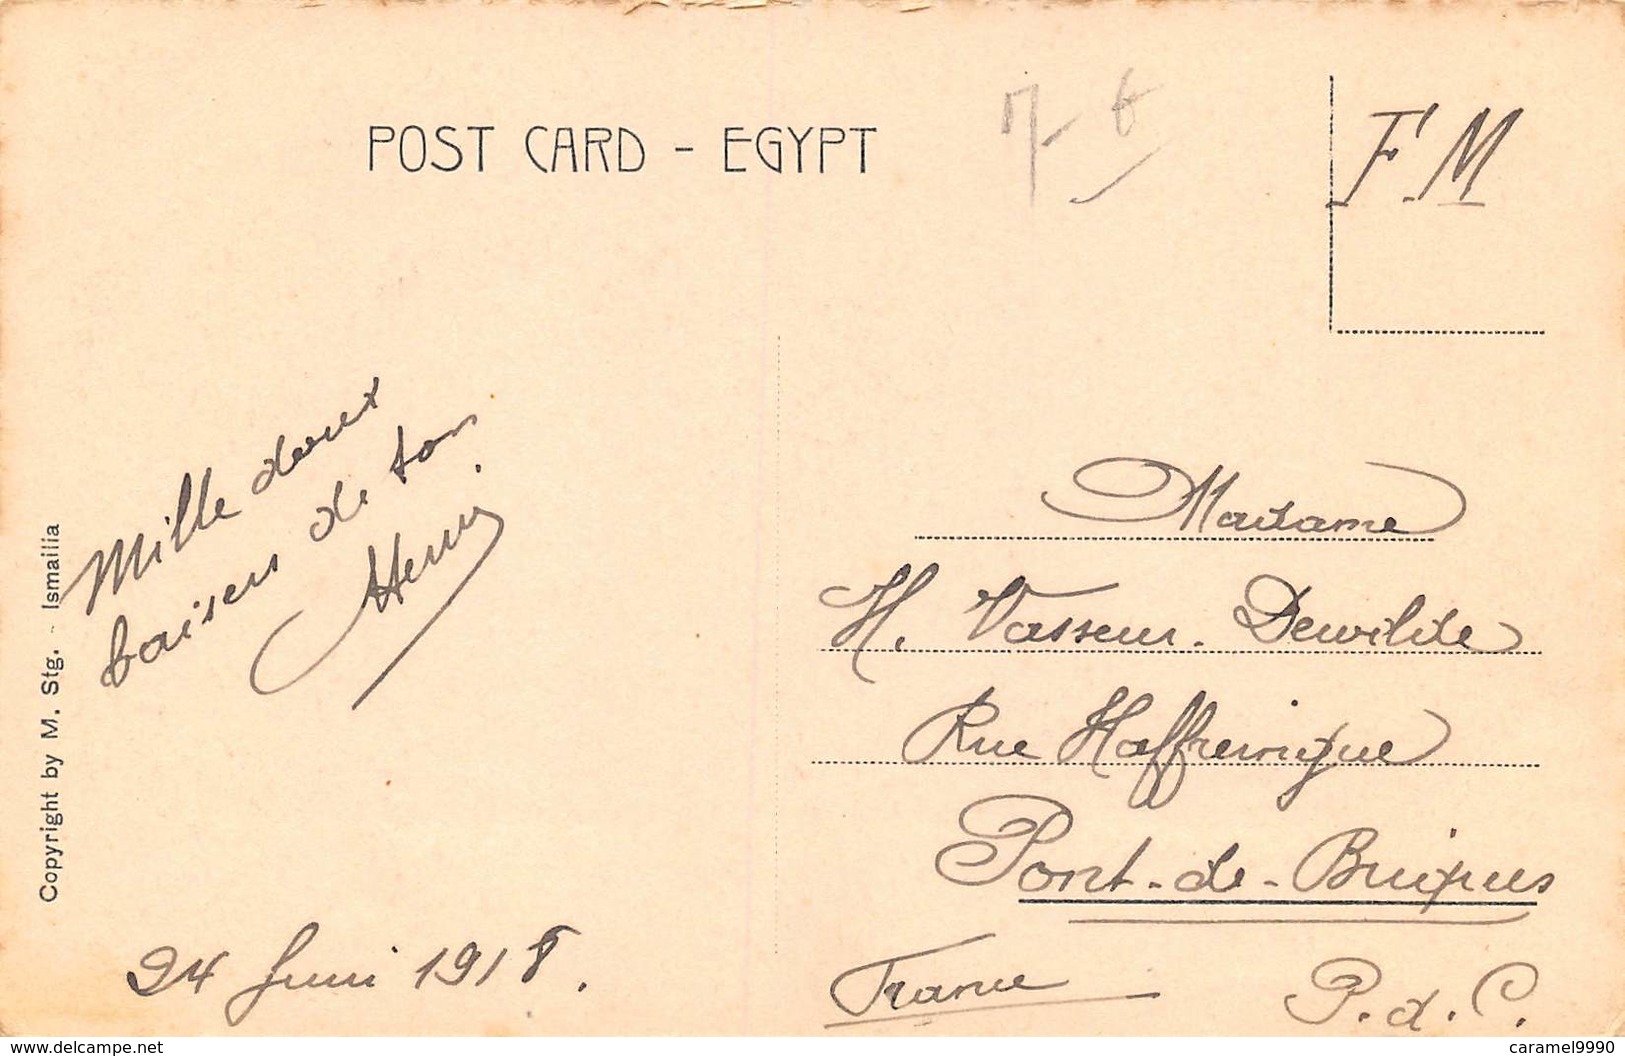 POST CARD - EGYPT
F M
Mille doux
baisers de ton
Henri
24 Juin 1918.
Copyright by M. Stg. - Ismailia
Madame
H. Vasseur-Dewilde
Rue Haffreingue
Pont-de-Briques
France P.d.C.
www.delcampe.net
caramel9990